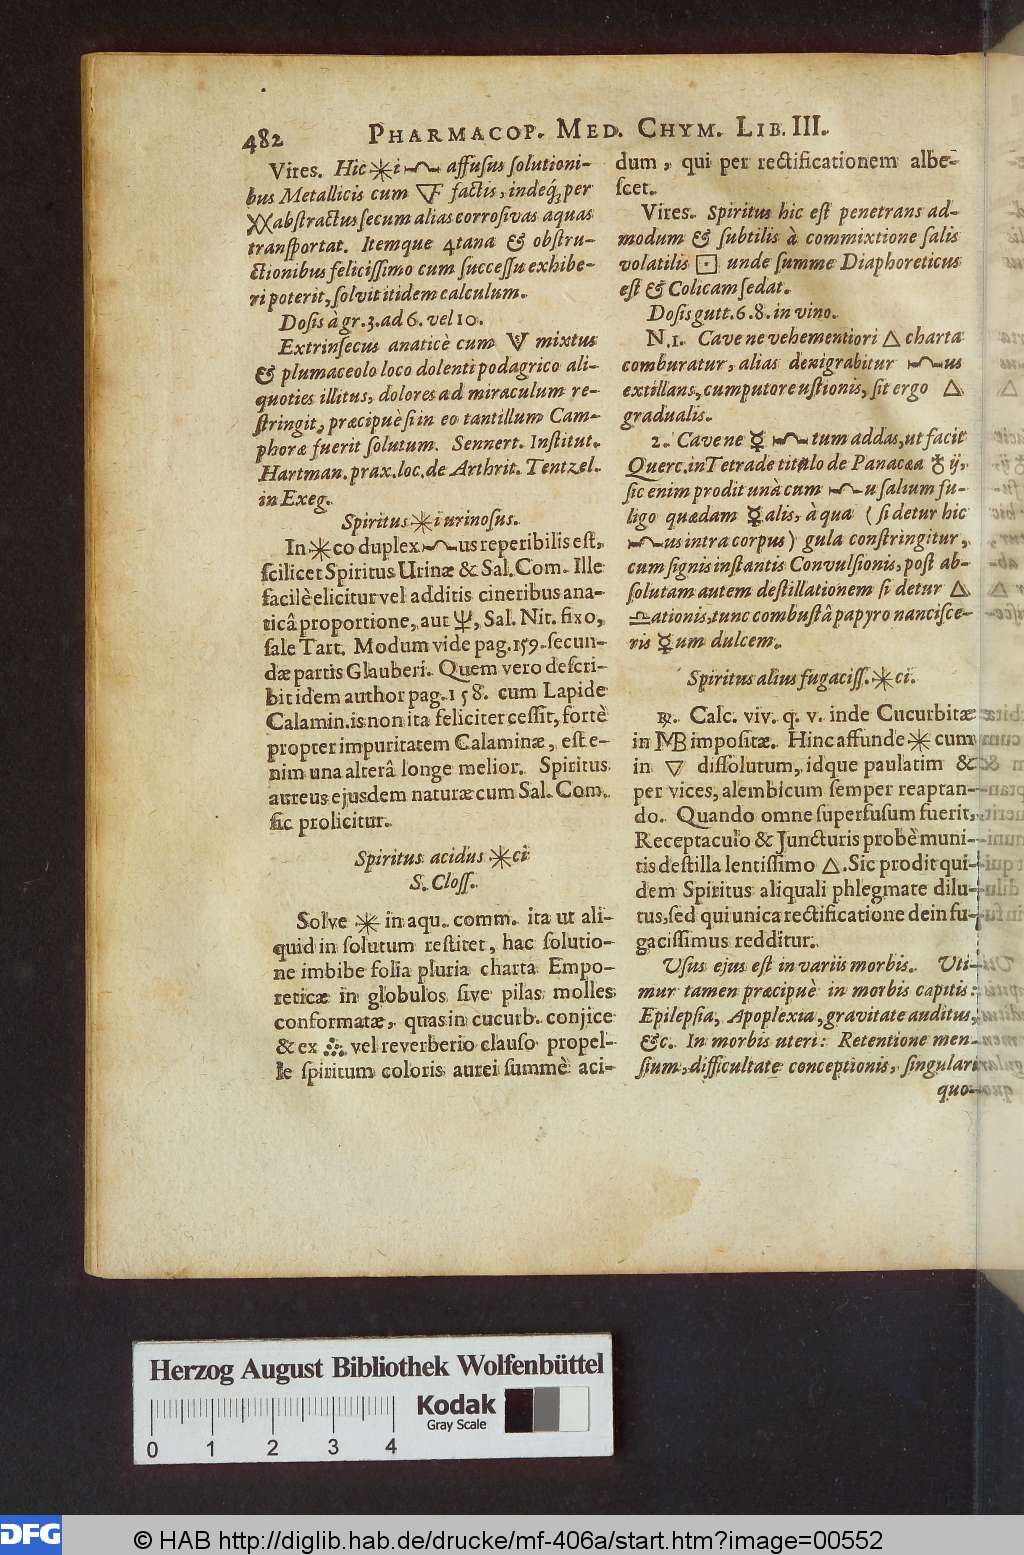 482 PHARMACOP. MED. CHYM. LIB. III.
Vires. Hic ✳i affusus solutioni-
bus Metallicis cum factis, indeq́; per
abstractus secum alias corrosivas aquas
transportat. Itemque 4tana & obstru-
ctionibus felicissimo cum successu exhibe-
ri poterit, solvit itidem calculum.
Dosis à gr. 3. ad 6. vel 10.
Extrinsecus anaticè cum mixtus
& plumaceolo loco dolenti podagrico ali-
quoties illitus, dolores ad miraculum re-
stringit, præcipuè si in eo tantillum Cam-
phoræ fuerit solutum. Sennert. Institut.
Hartman. prax. loc. de Arthrit. Tentzel.
in Exeg.
Spiritus ✳i urinosus.
In ✳co duplex us reperibilis est,
scilicet Spiritus Urinæ & Sal. Com. Ille
facilè elicitur vel additis cineribus ana-
ticâ proportione, aut , Sal. Nit. fixo,
sale Tart. Modum vide pag. 159. secun-
dæ partis Glauberi. Quem vero descri-
bit idem author pag. 158. cum Lapide
Calamin. is non ita feliciter cessit, fortè
propter impuritatem Calaminæ, est e-
nim una alterâ longe melior. Spiritus
aureus ejusdem naturæ cum Sal. Com.
sic prolicitur.
Spiritus acidus ✳ci
S. Closs.
Solve ✳ in aqu. comm. ita ut ali-
quid in solutum restitet, hac solutio-
ne imbibe folia pluria charta Empo-
reticæ in globulos sive pilas molles
conformatæ, quas in cucurb. conjice
& ex vel reverberio clauso propel-
le spiritum coloris aurei summè aci-
dum, qui per rectificationem albe-
scet.
Vires. Spiritus hic est penetrans ad-
modum & subtilis à commixtione salis
volatilis ⊡ unde summe Diaphoreticus
est & Colicam sedat.
Dosis gutt. 6. 8. in vino.
N. 1. Cave ne vehementiori △ charta
comburatur, alias denigrabitur us
extillans, cum putore ustionis, sit ergo △
gradualis.
2. Cave ne ☿ tum addas, ut facit
Querc. in Tetrade titulo de Panacæa ♁ ij,
sic enim prodit unà cum u salium fu-
ligo quædam ☿alis, à qua (si detur hic
us intra corpus) gula constringitur,
cum signis instantis Convulsionis, post ab-
solutam autem destillationem si detur △
♎ationis, tunc combustâ papyro nancisce-
ris ☿um dulcem.
Spiritus alius fugaciss. ✳ci.
℞. Calc. viv. q. v. inde Cucurbitæ
in MB impositæ. Hinc affunde ✳ cum
in ▽ dissolutum, idque paulatim &
per vices, alembicum semper reaptan-
do. Quando omne superfusum fuerit,
Receptaculo & Juncturis probè muni-
tis destilla lentissimo △. Sic prodit qui-
dem Spiritus aliquali phlegmate dilu-
tus, sed qui unica rectificatione dein fu-
gacissimus redditur.
Usus ejus est in variis morbis. Uti-
mur tamen præcipuè in morbis capitis:
Epilepsia, Apoplexia, gravitate auditus,
&c. In morbis uteri: Retentione men-
sium, difficultate conceptionis, singulari
quo-
Herzog August Bibliothek Wolfenbüttel
Kodak
Gray Scale
0 1 2 3 4
DFG © HAB http://diglib.hab.de/drucke/mf-406a/start.htm?image=00552